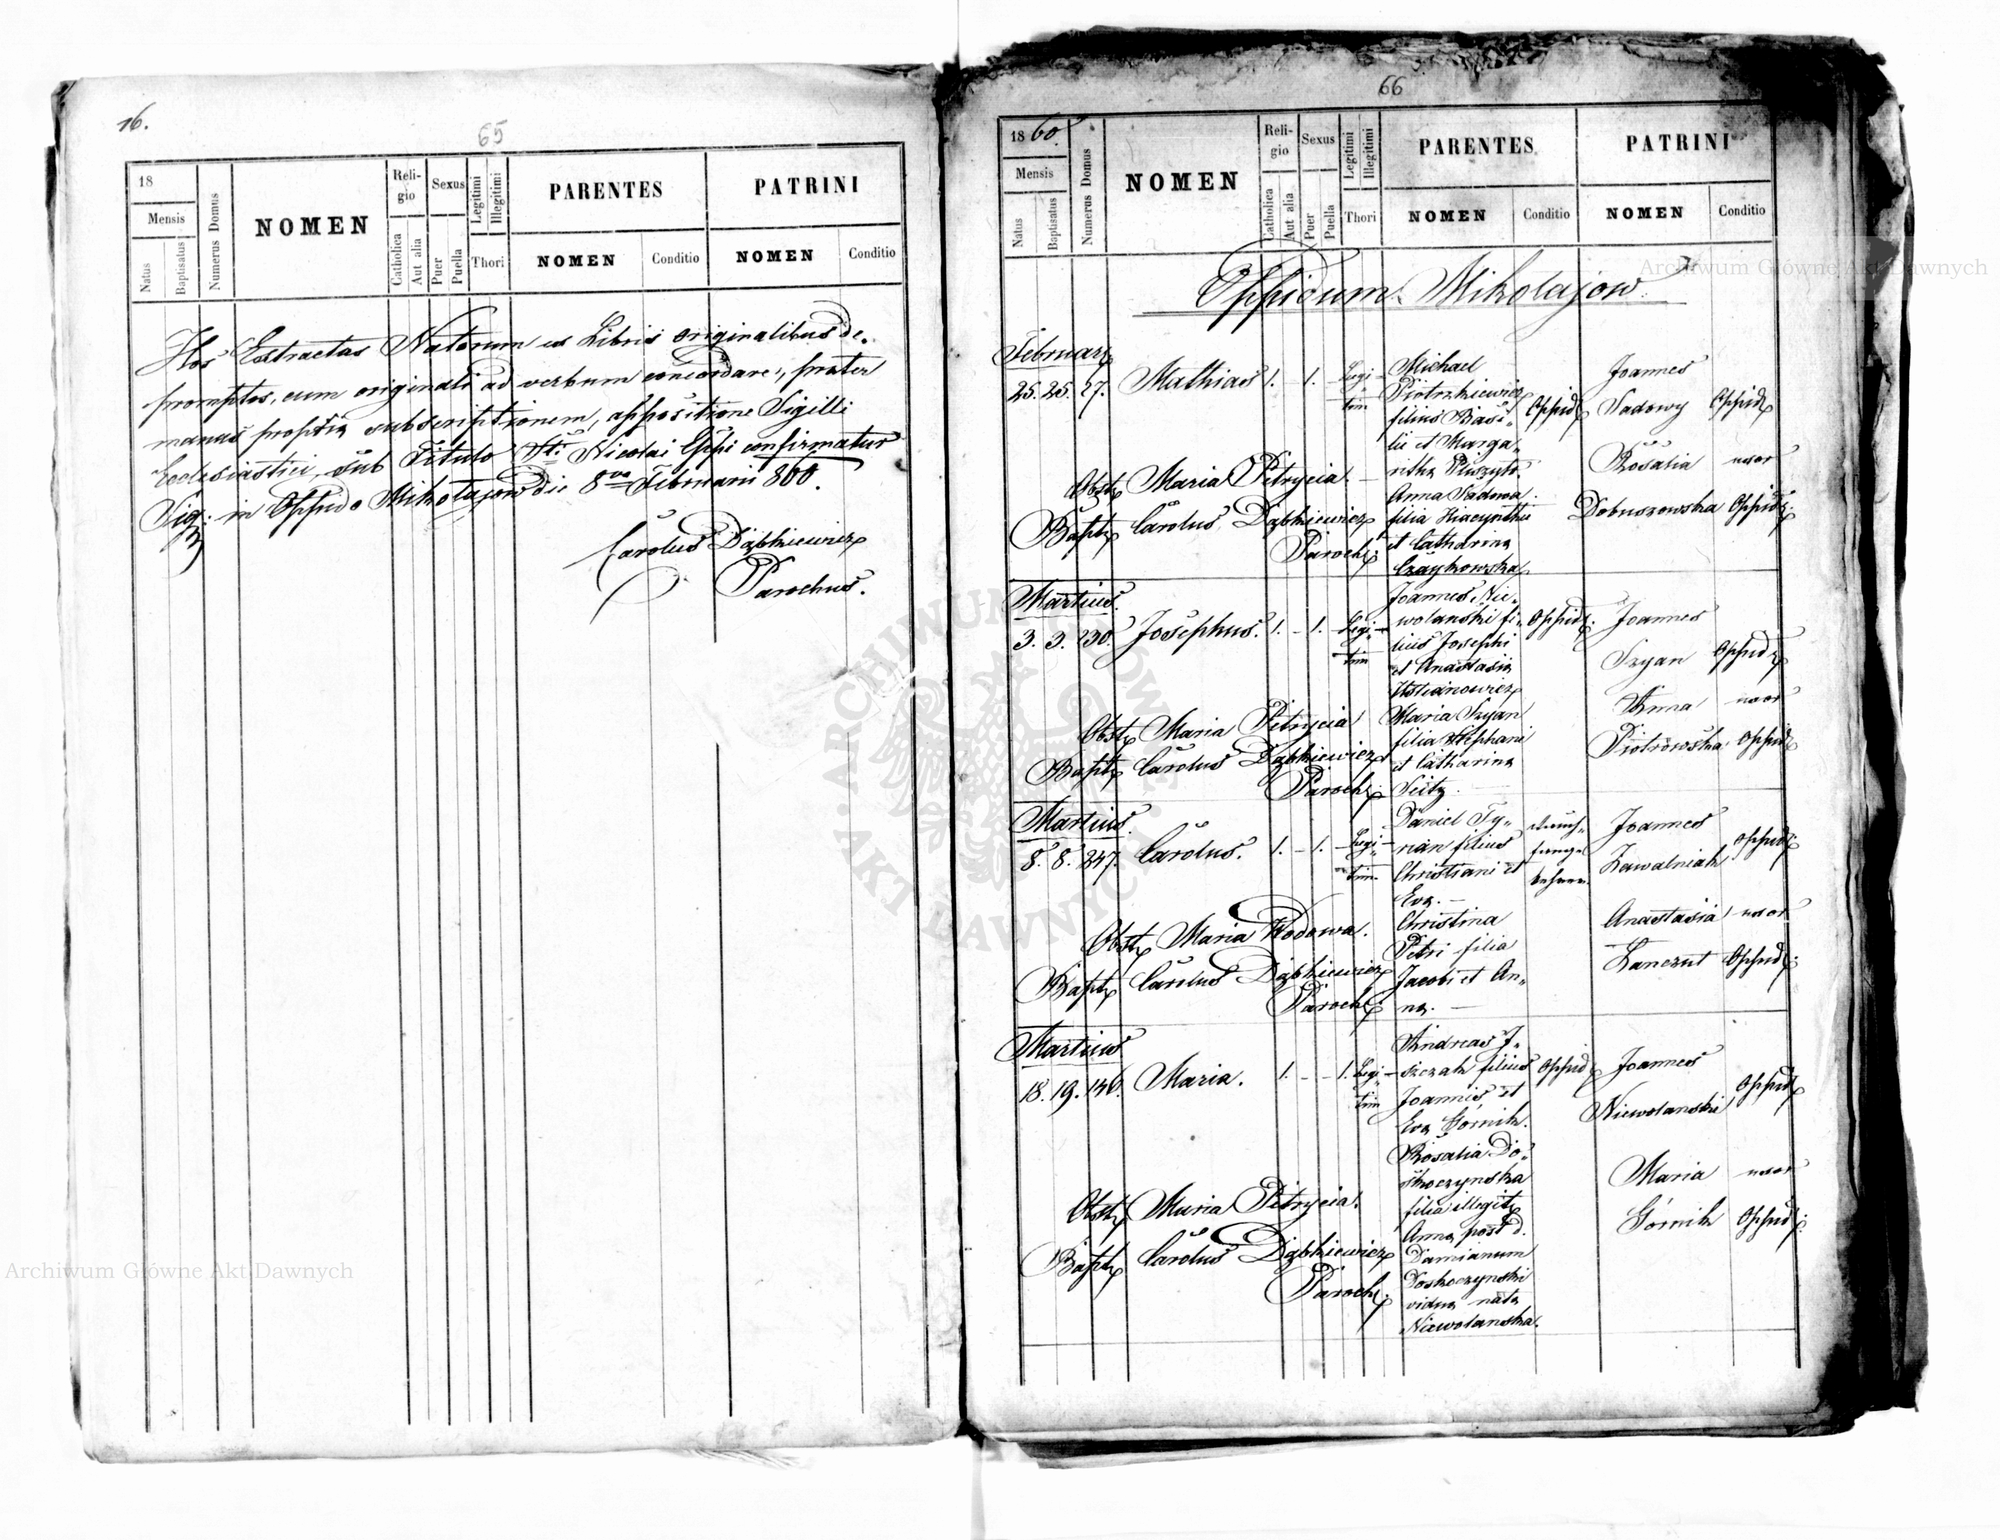 16.
65
18
Mensis
Natus
Baptisatus
Numerus Domus
NOMEN
Religio
Catholica
Aut alia
Sexus
Puer
Puella
Legitimi
Illegitimi
Thori
PARENTES
NOMEN
Conditio
PATRINI
NOMEN
Conditio
Hos Extractas Natorum ex Libris originalibus de-
promptos, cum originali ad verbum concordare, praeter
manus propriae subscriptionem, appositione Sigilli
Ecclesiastici, sub Titulo Sti Nicolai Eppi confirmatur
Sig: in Oppido Mikołajow die 8va Februarii
Carolus Dąbkiewicz
Parochus.
66
1860.
Mensis
Natus
Baptisatus
Numerus Domus
NOMEN
Religio
Catholica
Aut alia
Sexus
Puer
Puella
Legitimi
Illegitimi
Thori
PARENTES
NOMEN
Conditio
PATRINI
NOMEN
Conditio
Oppidum Mikołajow.
Februar
25. 25. 27. Mathias 1. - 1. - Legi-
tim
Michael
Piotrzkiewicz
filius Basi-
lii et Marga-
ritha
Anna Sadowa
filia Hiacynthi
et Catharina
Czaykowska
Oppid
Joannes
Sadowy Oppid
Rosalia uxor
Dobuszowska Oppid:
Obst Maria Petrycia. -
Bapt Carolus Dąbkiewicz
Paroch:
Martius.
3. 3. 230. Josephus. 1. - 1. - Legi-
tim
Joannes Nie-
wolanski fi-
lius Josephi
et Anastasia
Maria Szyan
filia Stephani
et Catharina
Seitz. -
Oppid:
Joannes
Szyan Oppid
Anna uxor
Piotrowska Oppid
Obst Maria Petrycia
Bapt Carolus Dąbkiewicz
Paroch:
Martius.
8. 8. 247. Carolus. 1. - 1. - Legi-
tim
Daniel Ty-
rian filius
Christiani et
Eva. -
Christina
Petri filia
Jacobi et An-
na. -
Joannes
Zawalniak Oppid:
Anastasia uxor
Lanczut Oppid:
Obst Maria Wodowa.
Bapt Carolus Dąbkiewicz
Paroch:
Martius
18. 19. 146. Maria. 1. - - 1. Legi-
tim
Andreas J-
szczak filius
Joannis et
Eva Górnik.
Rosalia Do-
skoczynska
filia illegit
Anna post d.
Damianum
Doskoczynski
vidua nata
Niewolanska.
Oppid
Joannes
Niewolanski Oppid
Maria uxor
Górnik Oppid:
Obst Maria Petrycia.
Bapt Carolus Dąbkiewicz
Paroch:
Archiwum Główne Akt Dawnych
Archiwum Główne Akt Dawnych
ARCHIWUM GŁÓWNE AKT DAWNYCH